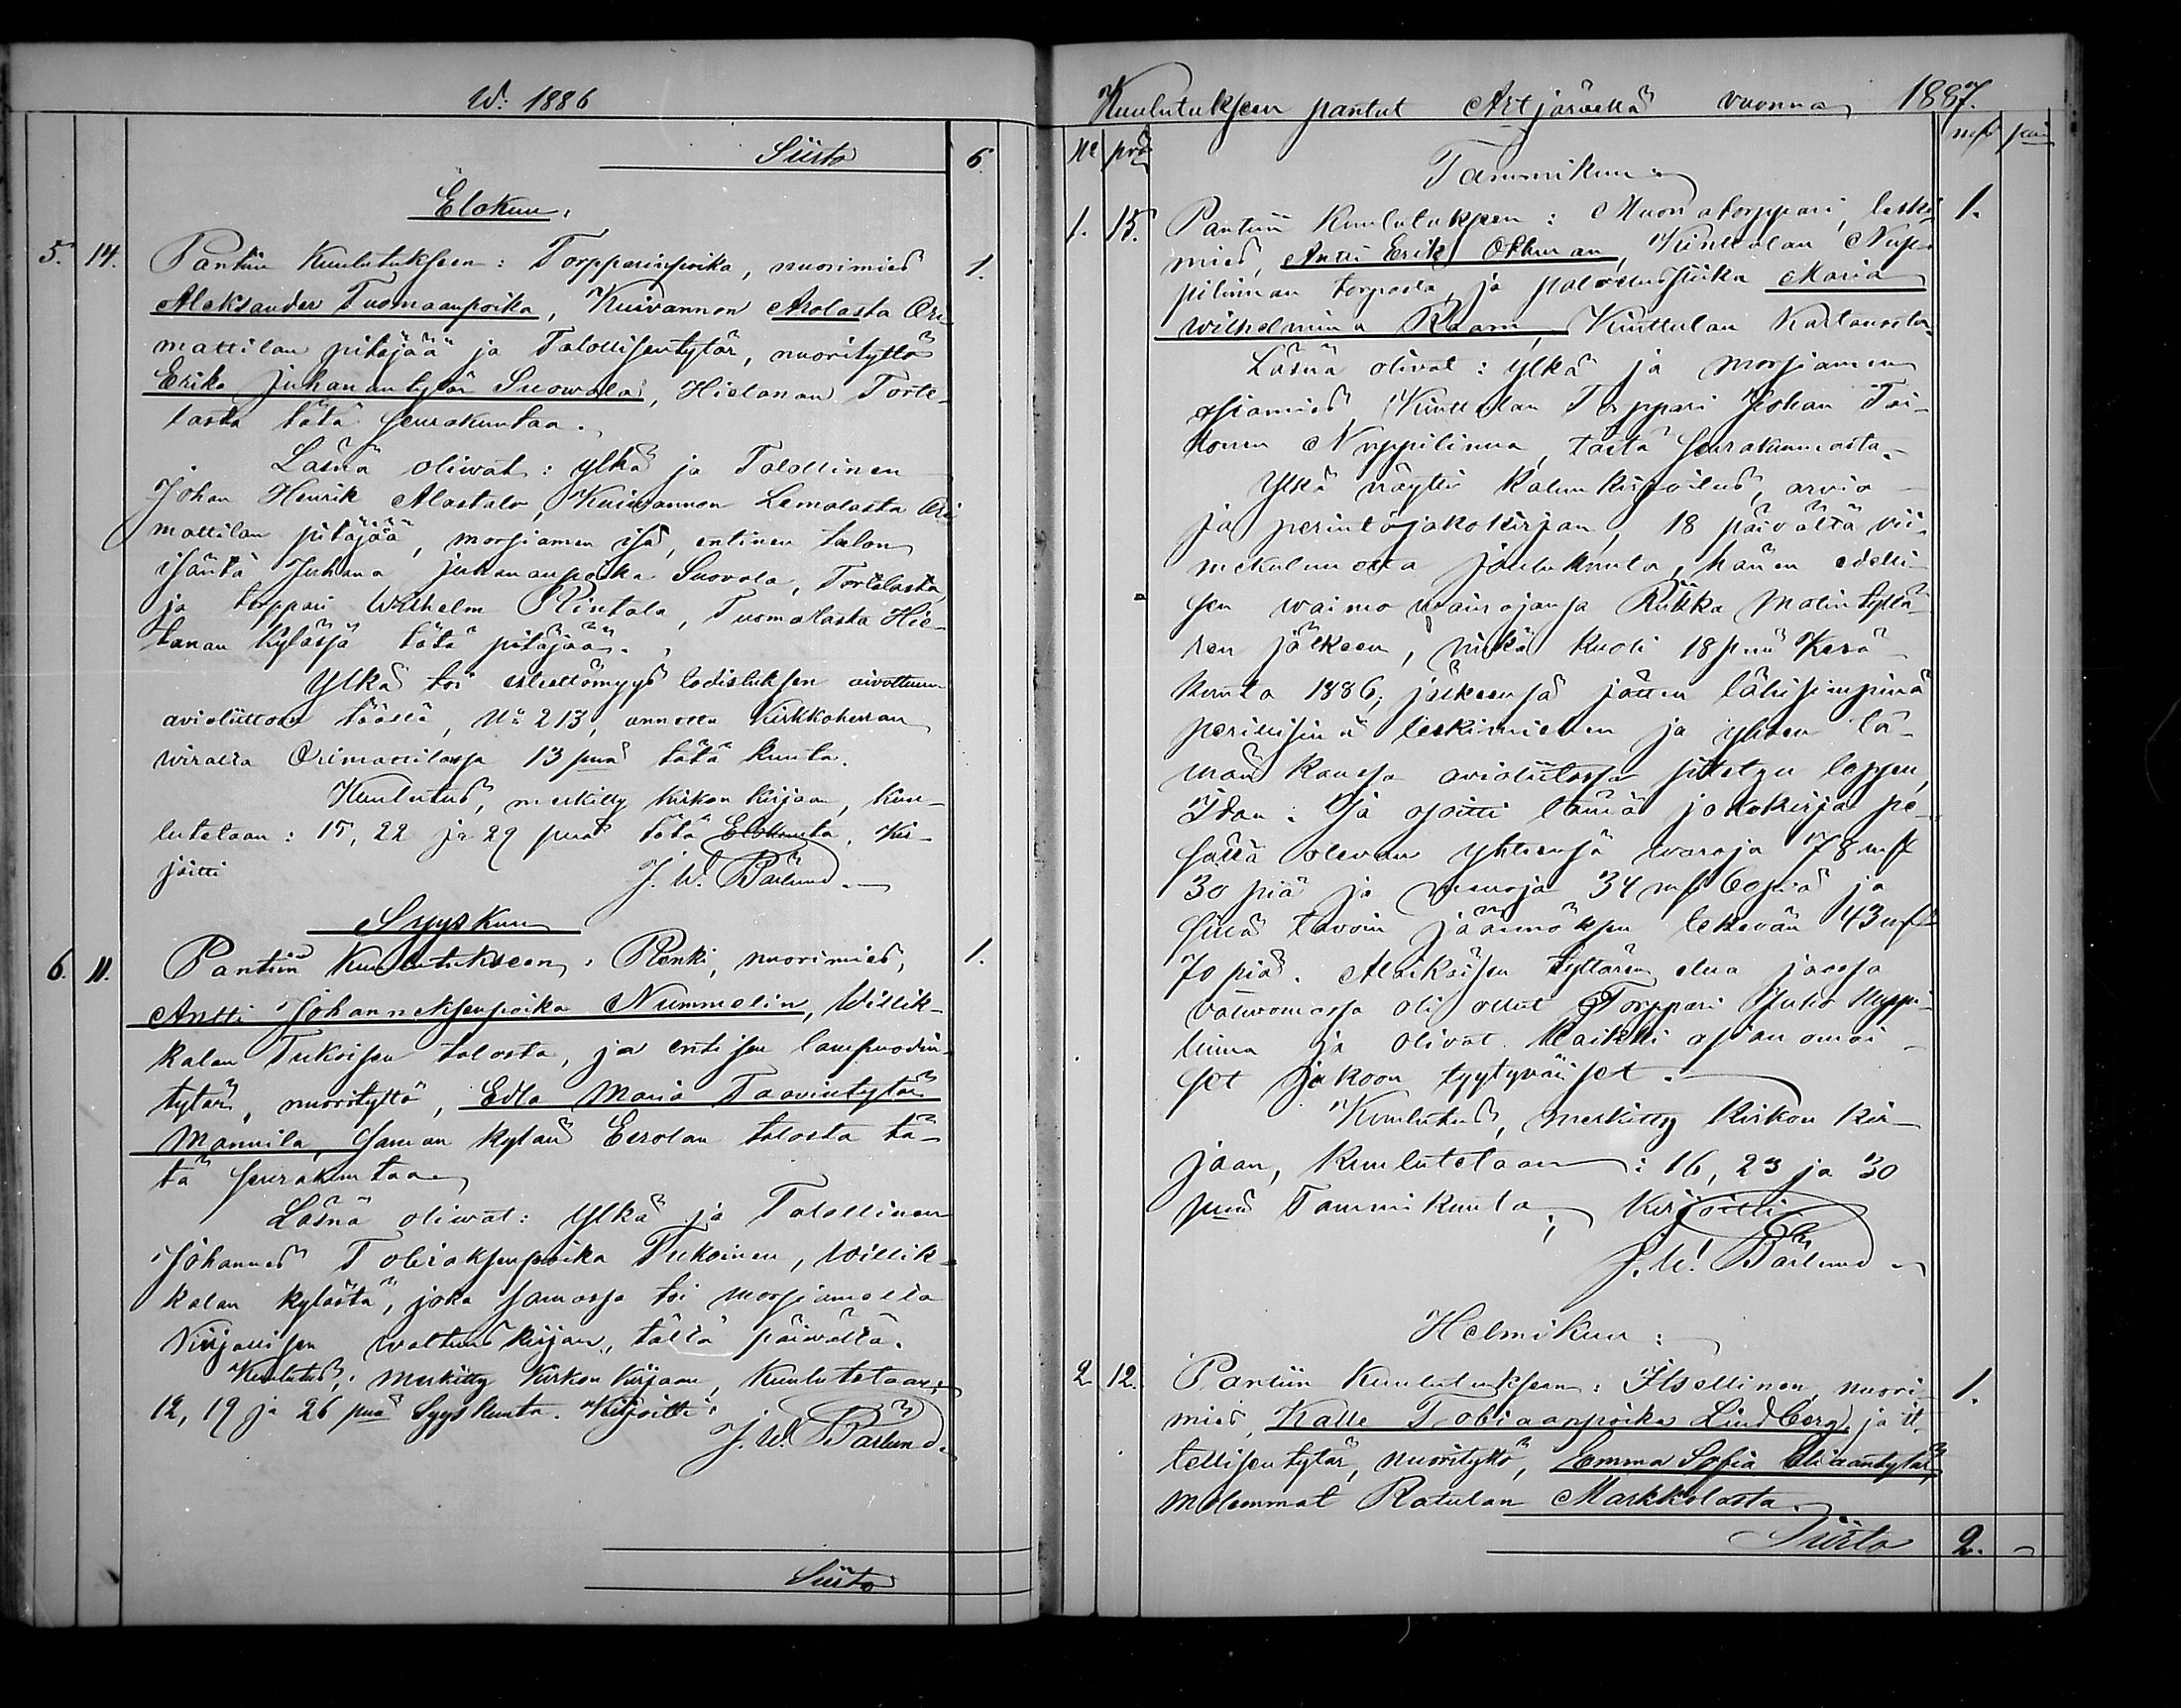 W: 1886
Siirto 6.
Elokuu:
5. 14. Pantiin Kuulutukseen: Torpparinpoika, nuorimies 1.
Aleksander Tuomaanpoika, Kuivannon Arolasta Ori-
mattilan pitäjää ja Talollisentytär, nuorityttö
Erika Juhanantytär Suowala, Hietanan Torte-
lasta tätä seurakuntaa.
Läsnä oliwat: ylkä ja Talollinen
Johan Henrik Alastalo, Kuivannon Lemolasta Ori
mattilan pitäjää, morsiamen isä, entinen talon
isäntä Juhana Juhananpoika Suovala, Tortelasta
ja torppari Wilhelm Rintala, Tuomalasta Hie-
tanan kylässä tätä pitäjää.
Ylkä toi esteettömyys todistuksen aivottuun
avioliittoon täällä, No 213, annettu Kirkkoherran
wirasta Orimattilassa 13 pnä tätä kuuta.
Kuulutus, merkitty kirkon kirjaan, kuu-
lutetaan: 15, 22 ja 29 pnä tätä Elokuuta. Kir-
joitti J. W. Bärlund.
Syyskuu
6. 11. Pantiin Kuulutukseen: Renki, nuorimies, 1.
Antti Johanneksenpoika Nummelin, Willik-
kalan Tukoisen talosta, ja entisen lampuodin-
tytär, nuorityttö, Edla Maria Taavintytär
Mannila, saman kylän Eerolan talosta tä-
tä seurakuntaa
Läsnä oliwat: Ylkä ja Talollinen
Johannes Tobiaksenpoika Tukoinen, Willik-
kalan kylästä, joka samassa toi morsiamelta
Kirjallisen waltuus kirjan, tältä päiwältä.
Kuulutus, merkitty Kirkon Kirjaan, Kuulutetaan:
12, 19 ja 26 pnä Syyskuuta. Kirjoitti:
J. W. Bärlund.
Siirto
Kuulutukseen pantut Artjärvellä vuonna 1887.
No pvä mk pni
Tammikuu
1. 15. Pantiin Kuulutukseen: Muonatorppari, leski 1.
mies, Antti Erik Öhman, Kinttulan Nup-
pilinnan torpasta, ja palvelusplika Maria
Wilhelmina Raam, Kinttulan Kartanosta.
Läsnä olivat: ylkä ja morsiamen
asiamies Kinttulan Torppari Johan Toi-
vonen Nuppilinna, tästä seurakunnasta.
Ylkä näytti kalunkirjoitus, arvio
ja perintöjakokirjan, 18 päivältä vii-
mekulunutta Joulukuuta, hänen edelli-
sen waimo wainajansa Riikka Matintyttä-
ren jälkeen, mikä kuoli 18 pnä Kesä-
kuuta 1886, jälkeensä jättäen lähisimpinä
perillisinä leskimiehen ja yhden tä-
män kanssa avioliitossa siitetyn lapsen,
Idan. Ja osoitti tämä jakokirja pe-
sässä olevan yhteensä waroja 78 mk
30 piä ja menoja 34 mk 60 piä ja
siinä tavoin jäännöksen tekevän 43 mk
70 piä. Alaikäisen tyttären etua jaossa
valwomassa oli ollut Torppari Juho Nuppi-
linna ja olivat kaikki asian omai-
set jakoon tyytyväiset.
Kuulutus, merkitty Kirkon kir-
jaan, kuulutetaan: 16, 23 ja 30
pnä Tammikuuta; Kirjoitti
J. W. Bärlund
Helmikuu:
2. 12. Pantiin Kuulutukseen: Itsellinen, nuori 1.
mies, Kalle Tobiaanpoika Lindberg, ja it-
tellisentytär, nuorityttö, Emma Sofia Eliaantytär,
molemmat Ratulan Markkolasta.
Siirto 2. -